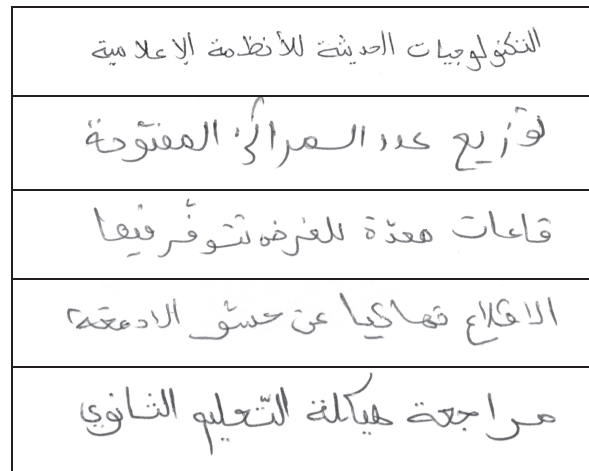 التكنولوجيات الحديثة للأنظمة الإعلامية
توزيع عدد المراكز المفتوحة
قاعات معدّة للغرض تتوفّر فيها
الاقلاع نهائيا عن حشو الادمغة
مراجعة هيكلة التّعليم الثانوي